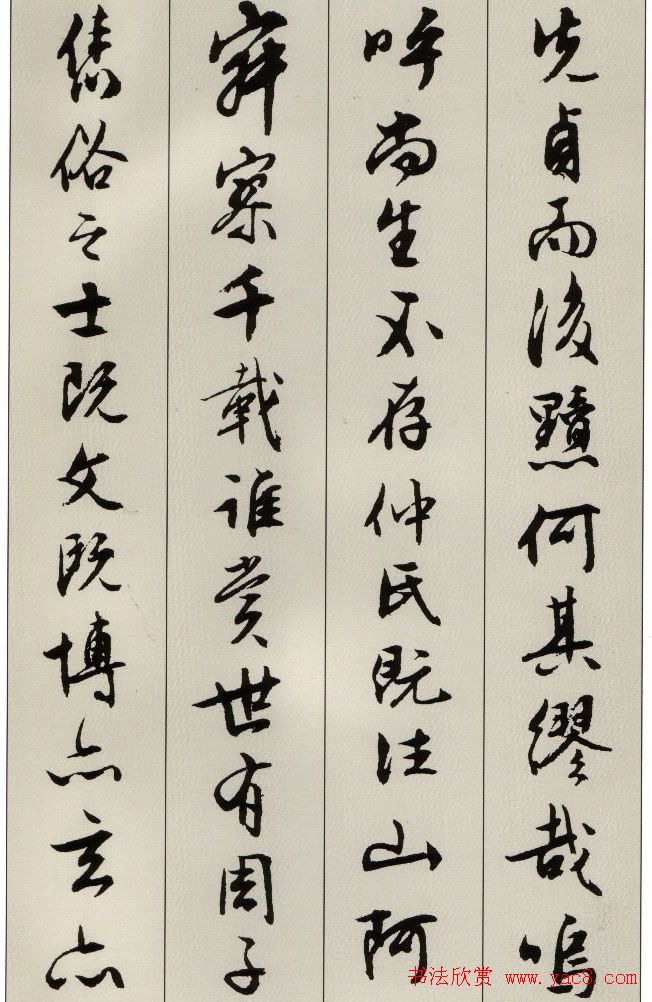 先貞而後黷何其繆哉嗚
呼尚生不存仲氏既往山阿
寂寥千載誰賞世有周子
儁俗之士既文既博亦玄亦
书法欣赏 www.yac8.com